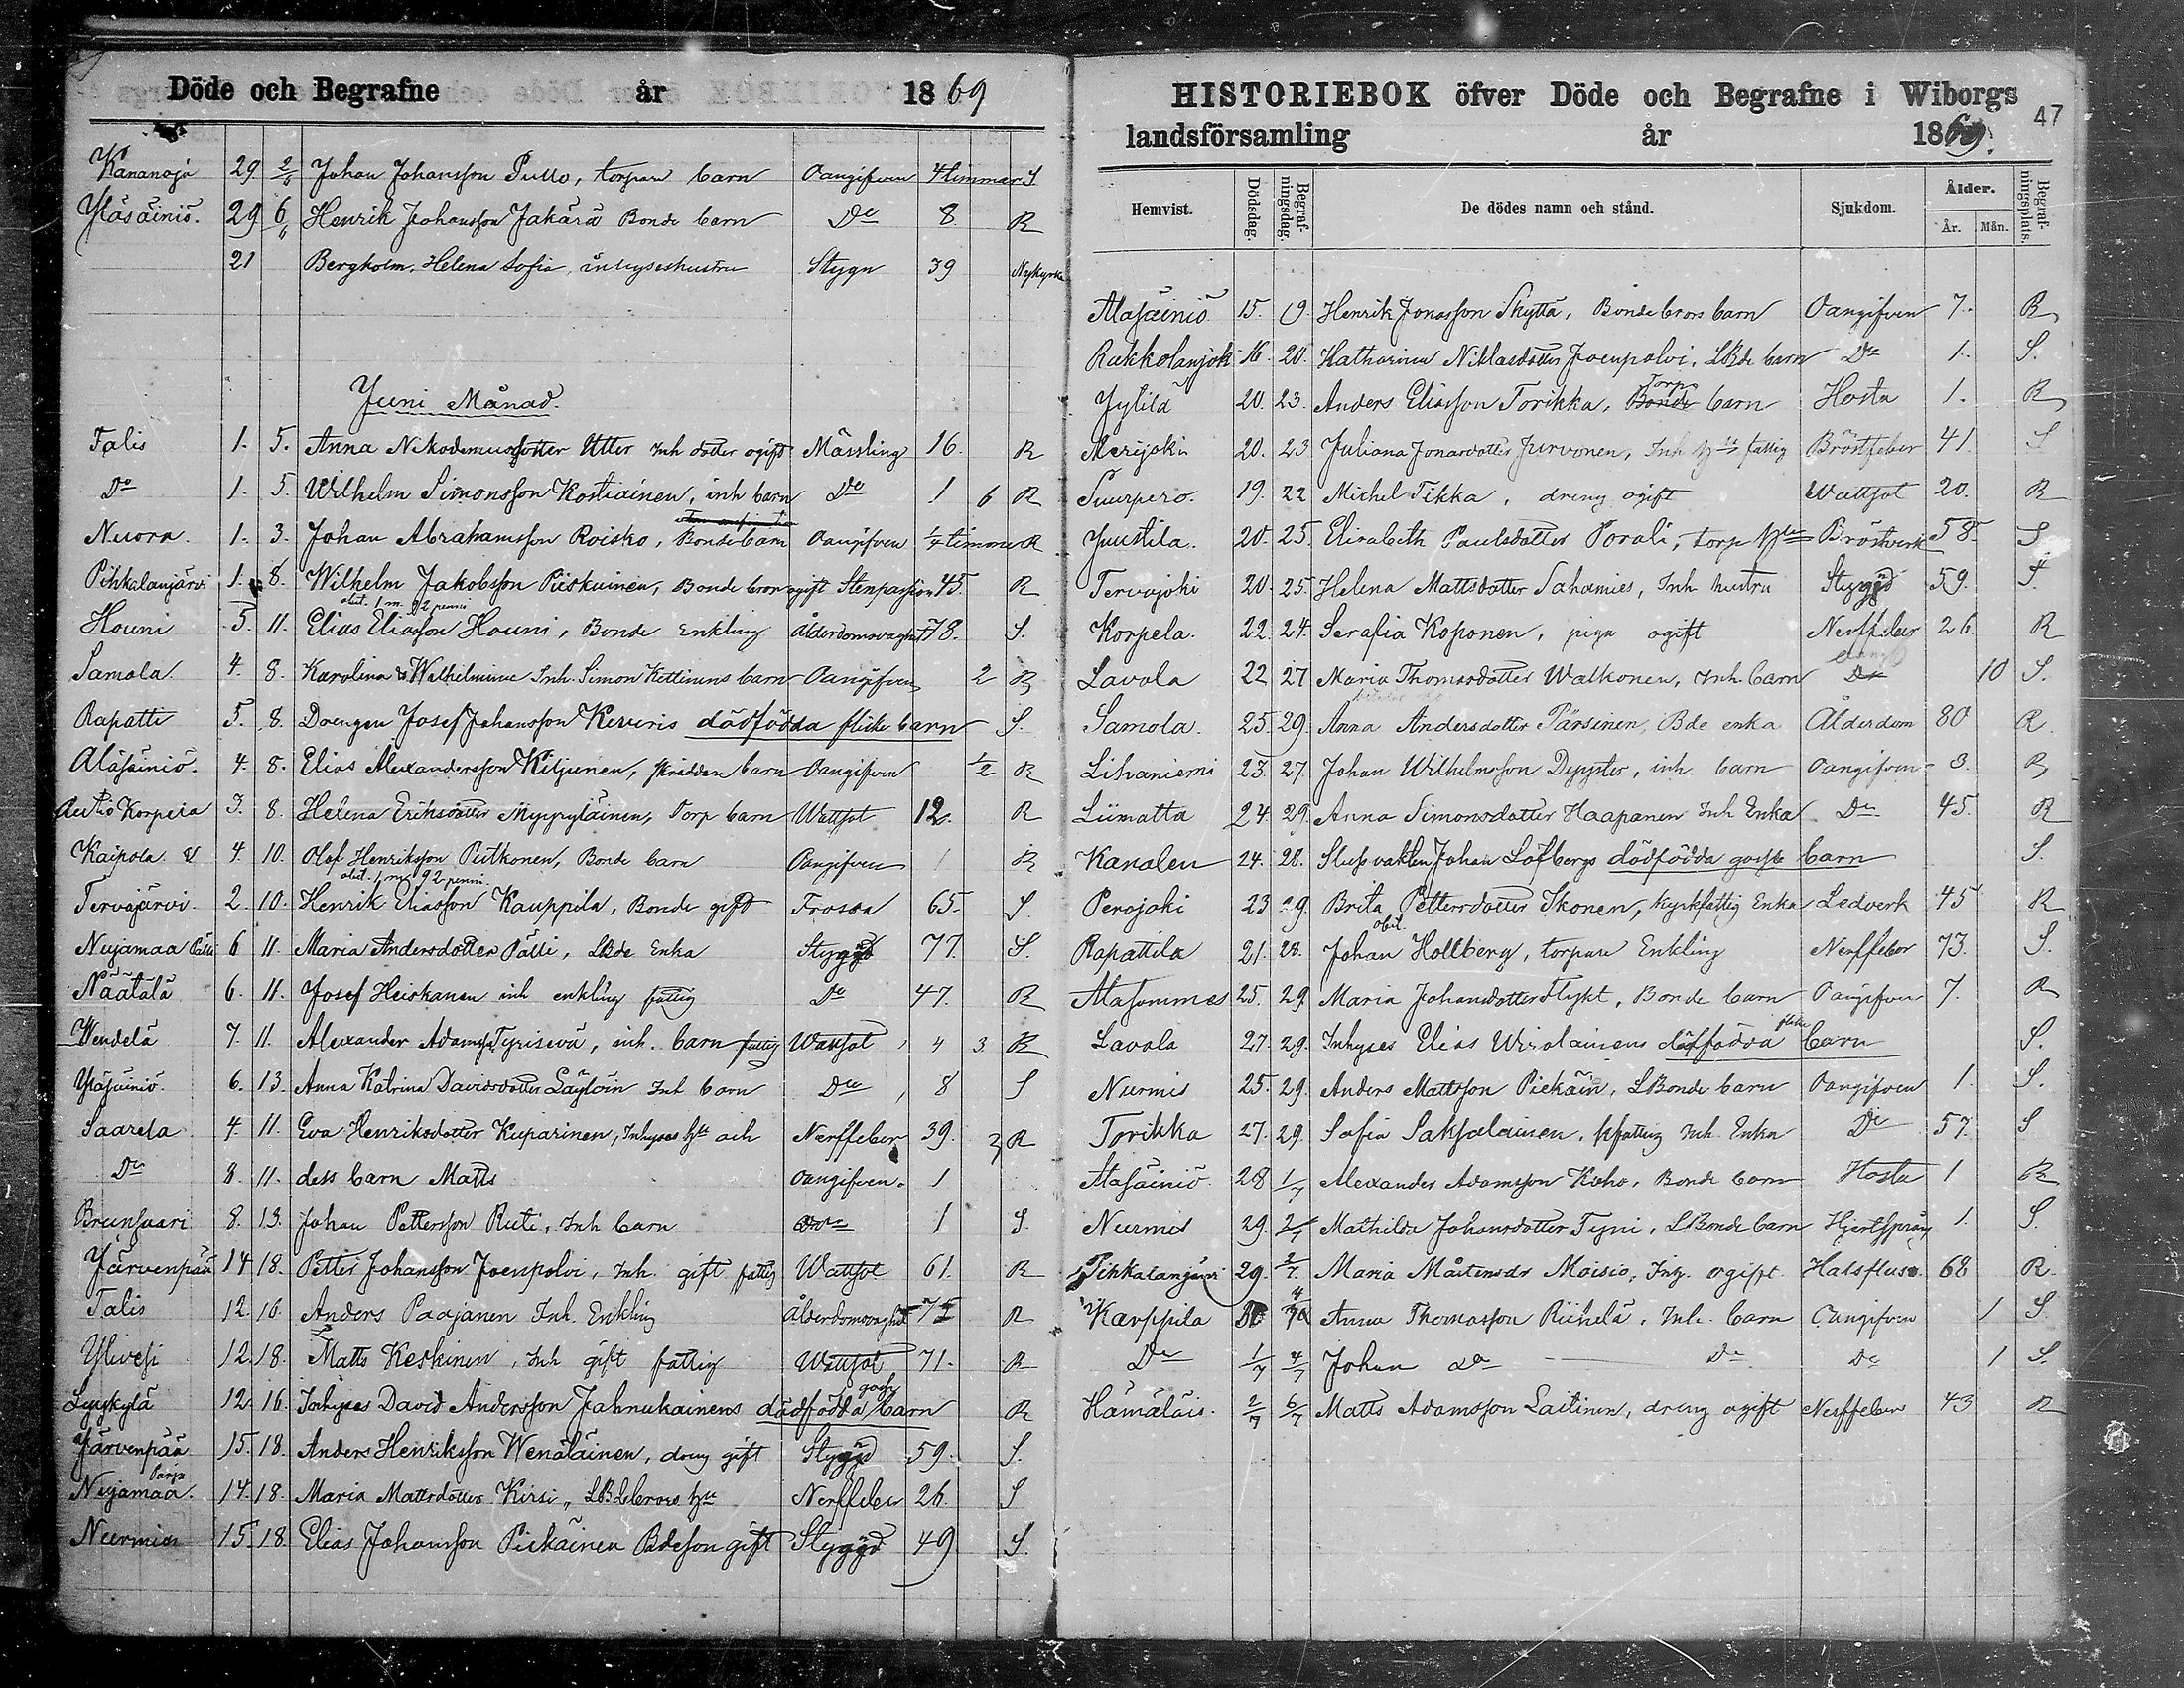 Döde och Begrafne år 1869
Kananoja 29 2/6 Johan Johansson Pullo, torpare barn Oangifven 4 timmar S
Yläsäiniö. 29 6/6 Henrik Johansson Jakärä Bonde barn Do 8. R
21 Bergholm, Helena Sofia, inhyseshustru Stygn 39 Nykyrka
Juni Månad.
Talis 1. 5. Anna Nikodemusdotter Utter Inh dotter ogift Mässling 16. R
Do 1. 5. Wilhelm Simonsson Kostiainen, inh barn Do 1 6 R
Nuora. 1. 3. Johan Abrahamsson Roisko, Bonde barn Oangifven 1/4 timme R
Pihkalanjärvi 1. 8. Wilhelm Jakobsson Pieskuinen, Bonde bror ogift Stenpassion 45. R
obit. 1 m. 92 penni
Houni 5. 11. Elias Eliasson Houni, Bonde Enkling Ålderdomsvaghet 78. S.
Samola. 4. 8. Karolina & Walhelmina Inh. Simon Kettinens barn Oangifven 2 R
Rapatti 5. 8. Drengen Josef Johansson Keveris dödfödda flicke barn S.
Alasäiniö. 4. 8. Elias Alexandersson Kiljunen, skräddare barn Oangifven 1/2 R
Autio Korpela 3. 8. Helena Eriksdotter Myyryläinen, Torp barn Wattsot 12. R
Kaipola 4. 10. Olof Henriksson Putkonen, Bonde barn Oangifven 1 R
obit. 1 m 92 penni.
Tervajärvi. 2. 10. Henrik Eliasson Kauppila, Bonde gift Frossa 65. S.
Nujamaa Pälli 6 11. Maria Andersdotter Pälli, LBde Enka Stygg 77. S.
Näätälä 6. 11. Josef Heiskanen inh enkling fattig Do 47. R
Wendelä 7. 11. Alexander Adamss. Tyrisevä, inh. barn fattig Wattsot 4 3. R
Yläsäiniö. 6. 13. Anna Katrina Davidsdotter Säylöin Inh barn Do 8 S
Saarela 4. 11. Eva Henriksdotter Kuparinen, Inhyses hu och Nerffeber 39. 3 R
Do 8. 11. dess barn Matts Oangifven. 1
Brunsaari 8. 13. Johan Pettersson Ruti, Inh barn Do 1 S.
Järvenpää 14 18. Petter Johansson Joenpolvi, Inh. gift fattig Wattsot 61. R
Talis 12. 16. Anders Paajanen Inh. Enkling Ålderdomsvaghet R
Ylivesi 12. 18. Matts Keskinen, Inh gift fattig Wattsot 71. R
Lyykylä 12. 16. Inhyses David Andersson Jahnukainens dödfödda goss barn R
Järvenpää 15. 18. Anders Henriksson Wenäläinen, dreng gift Stygg 59. S.
Nujamaa. 14. 18. Maria Mattsdotter Kirsi, LBdebrors hu Nerffeber 26. S
Nurmis 15. 18. Elias Johansson Piekäinen Bdeson gift Stygg 49 S.
HISTORIEBOK öfver Döde och Begrafne i Wiborgs
landsförsamling år 1869.
47
Hemvist. Dödsdag. Begrafningsdag. De dödes namn och stånd. Sjukdom. Ålder. År. Mån. Begrafningsplats.
Alasäiniö 15. 19. Henrik Jonasson Skyttä, Bonde brors barn Oangifven 7. R
Rakkolanjoki 16. 20. Katharina Niklasdotter Joenpolvi, LBde barn Do 1. S.
Torp
Jylilä 20. 23. Anders Eliasson Torikka, Bonde barn Hosta 1. R
Merijoki 20. 23 Juliana Jonasdotter Jurvonen, Inh hu fattig Bröstfeber 41. S
Suurpero. 19. 22 Michel Tikka, dreng ogift Wattsot 20. R
Juustila. 20. 25. Elisabeth Paulsdotter Porali, torp hu Bröstverk 58. S
Tervajoki 20. 25. Helena Mattsdotter Sahamies, Inh hustru Stygg 59. S
Korpela. 22. 24. Serafia Koponen, piga ogift Nerffeber 26. R
Lavola 22 27 Maria Thomasdotter Walkonen, Inh. barn 10 S.
Samola. 25. 29. Anna Andersdotter Pärsinen, Bde enka Ålderdom 80 R
Lihaniemi 23. 27. Johan Wilhelmsson Dyyster, inh. barn Oangifven 3. R
Liimatta 24. 29. Anna Simonsdotter Haapanen Inh Enka Do 45. R
Kanalen 24. 28. Slussvakten Johan Löfbergs dödfödda gosse barn S.
Perojoki 23 29. Brita Pettersdotter Ikonen, kyrkfattig Enka Ledverk 45 R
obit.
Rapattila 21. 28. Johan Hollberg, torpare Enkling Nerffeber 73. S.
Alasommes 25. 29. Maria Johansdotter Flykt, Bonde barn Oangifven 7. R
Lavola 27. 29. Inhyses Elias Wirolainens dödfödda flicke barn S.
Nurmis 25. 29. Anders Mattsson Piekäin, LBonde barn Oangifven 1. S.
Torikka 27. 29. Sofia Saksalainen, fattig Inh. Enka Do 57. S
Alasäiniö. 28 1/7 Alexander Adamsson Koho, Bonde barn Hosta 1 R
Nurmis 29. 2/7 Mathilda Johansdotter Tyni, LBonde barn Hjertsprång 1. S.
Pihkalanjärvi 29. 2/7. Maria Mårtensdr Moisio, Inh. ogift. Halsfluss. 68 R.
Karppila 30 4/7 Anna Thomasson Riihelä, Inh. barn Oangifven 1 S.
Do 1/7 4/7 Johan do Do Do 1 S.
Hämäläis. 2/7 6/7 Matts Adamsson Laitinen, dreng ogift Nerffeber 43 R